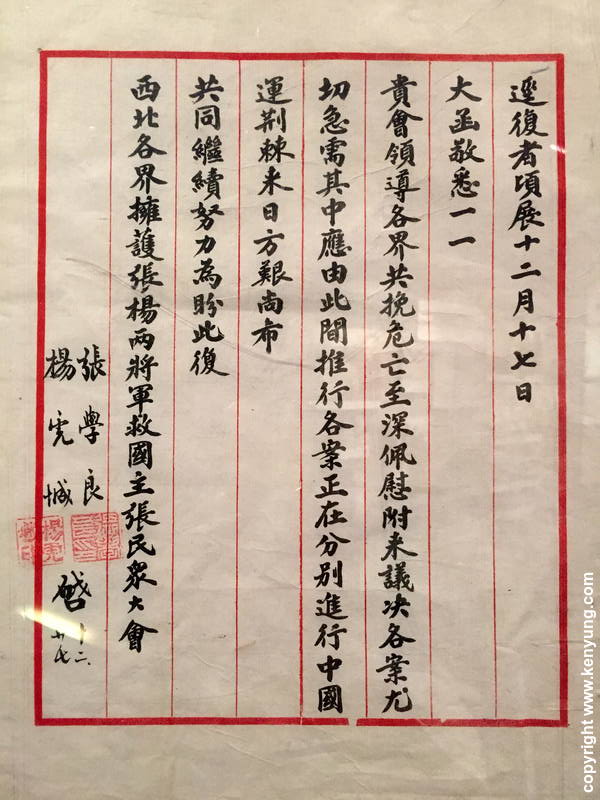 逕復者頃展十二月十七日
大函敬悉一一
貴會領導各界共挽危亡至深佩慰附来議决各案尤
切急需其中應由此間推行各案正在分別進行中國
運荆棘来日方艱尚布
共同繼續努力為盼此復
西北各界擁護張楊兩將軍救國主張民眾大會
張學良
楊虎城
啓
十二
廿七
copyright www.kenyung.com